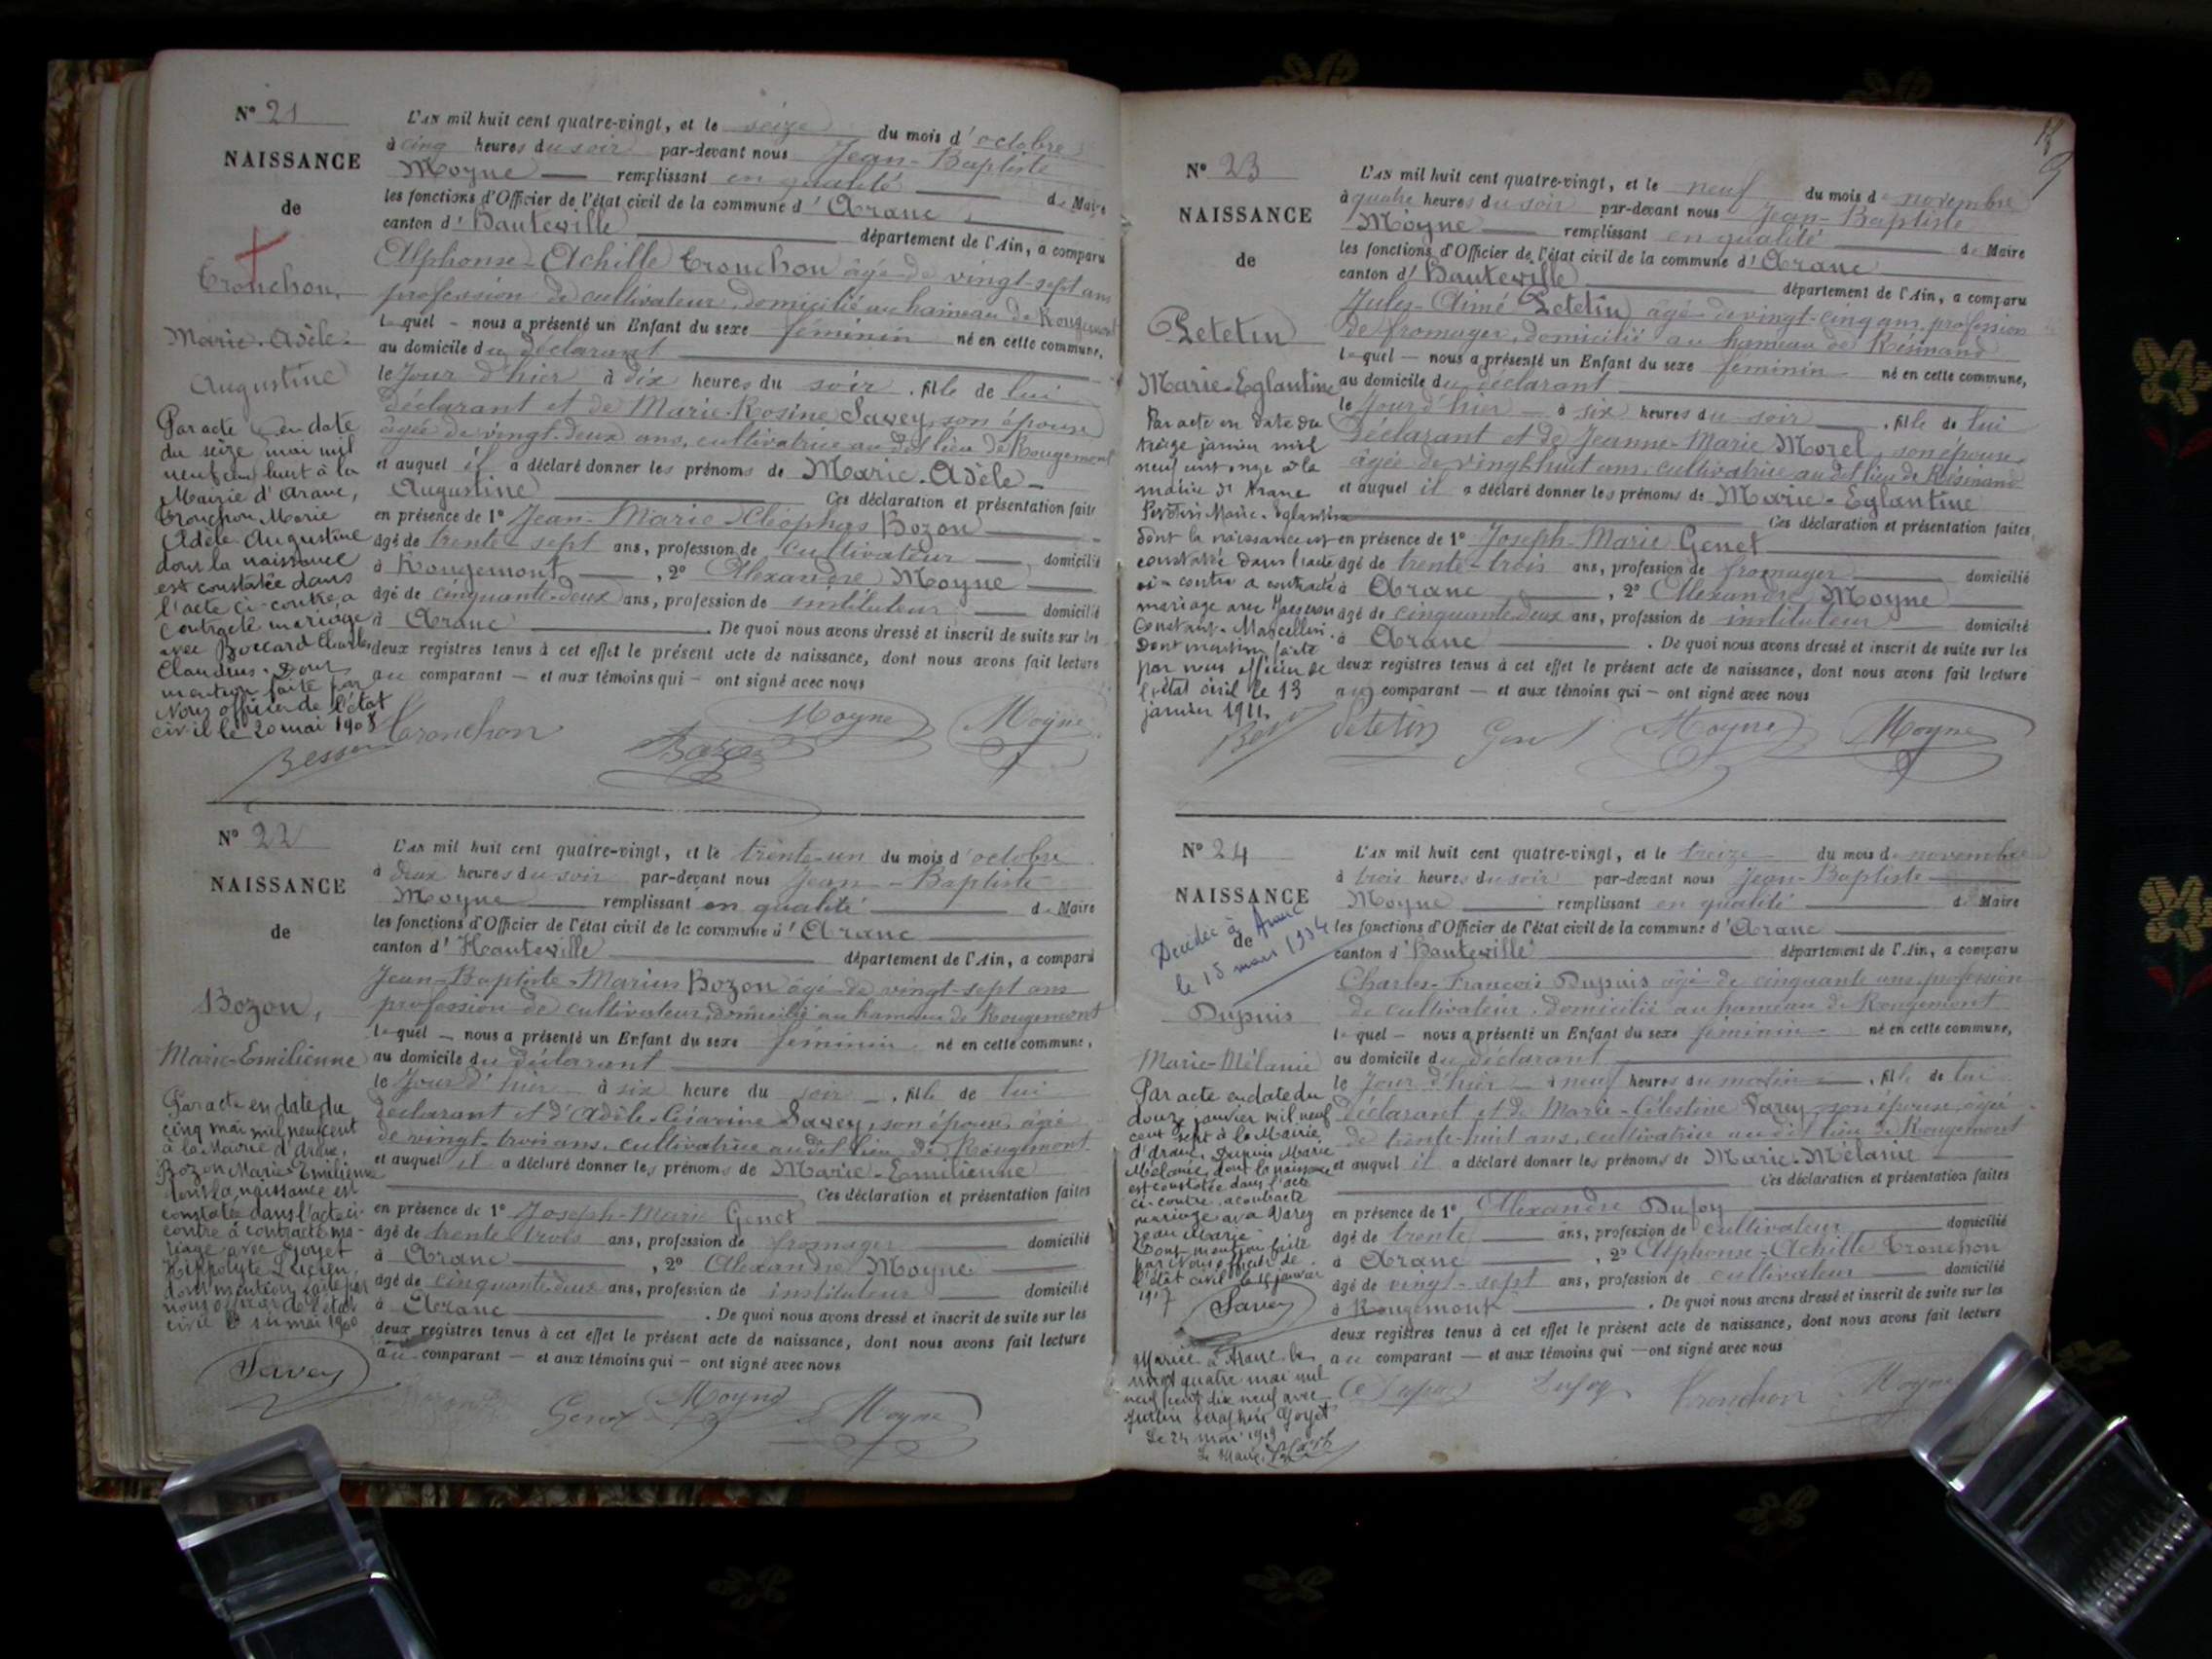 N° 21
NAISSANCE
de
Tronchon,
Marie-Adèle-
Augustine
Par acte en date
du seize mai mil
neuf cent huit à la
Mairie d'Aranc,
Tronchon Marie
Adèle Augustine
dont la naissance
est constatée dans
l'acte ci-contre a
contracté mariage
avec Boccard Charles
Claudius. Dont
mention faite par
Nous officier de l'état
civil le 20 mai 1908
Besson
L'AN mil huit cent quatre-vingt, et le seize du mois d'octobre
à cinq heures du soir par-devant nous Jean-Baptiste
Moyne remplissant en qualité de Maire
les fonctions d'Officier de l'état civil de la commune d'Aranc
canton d'Hauteville département de l'Ain, a comparu
Alphonse-Achille Tronchon âgé de vingt-sept ans
profession de cultivateur, domicilié au hameau de Rougemont
lequel nous a présenté un Enfant du sexe féminin né en cette commune,
au domicile du déclarant
le jour d'hier à dix heures du soir, fille de lui
déclarant et de Marie-Rosine Savey, son épouse
âgée de vingt-deux ans, cultivatrice au dit lieu de Rougemont
et auquel il a déclaré donner les prénoms de Marie-Adèle-
Augustine Ces déclaration et présentation faites
en présence de 1° Jean-Marie-Cléophas Bozon
âgé de trente-sept ans, profession de cultivateur domicilié
à Rougemont, 2° Alexandre Moyne
âgé de cinquante-deux ans, profession de instituteur domicilié
à Aranc. De quoi nous avons dressé et inscrit de suite sur les
deux registres tenus à cet effet le présent acte de naissance, dont nous avons fait lecture
au comparant — et aux témoins qui — ont signé avec nous
Tronchon Bozon Moyne Moyne
N° 22
NAISSANCE
de
Bozon,
Marie-Emilienne
Par acte en date du
cinq mai mil neuf cent
à la Mairie d'Aranc,
Bozon Marie Emilienne
dont la naissance est
constatée dans l'acte ci-
contre a contracté ma-
riage avec Goyet
Hippolyte Lucien,
dont mention faite par
nous officier de l'état
civil le mai 1900
Savey
L'AN mil huit cent quatre-vingt, et le trente-un du mois d'octobre
à deux heures du soir par-devant nous Jean-Baptiste
Moyne remplissant en qualité de Maire
les fonctions d'Officier de l'état civil de la commune d'Aranc
canton d'Hauteville département de l'Ain, a comparu
Jean-Baptiste-Marius Bozon âgé de vingt-sept ans
profession de cultivateur, domicilié au hameau de Rougemont
lequel — nous a présenté un Enfant du sexe féminin né en cette commune,
au domicile du déclarant
le jour d'hier à six heure du soir, fille de lui
déclarant et d'Adèle-Césarine Savey, son épouse, âgé
de vingt-trois ans, cultivatrice au dit lieu de Rougemont
et auquel il a déclaré donner les prénoms de Marie-Emilienne
Ces déclaration et présentation faites
en présence de 1° Joseph-Marie Genet
âgé de trente-trois ans, profession de fromager domicilié
à Aranc, 2° Alexandre Moyne
âgé de cinquante-deux ans, profession de instituteur domicilié
à Aranc. De quoi nous avons dressé et inscrit de suite sur les
deux registres tenus à cet effet le présent acte de naissance, dont nous avons fait lecture
au comparant — et aux témoins qui — ont signé avec nous
Genet Moyne Moyne
N° 23
NAISSANCE
de
Petetin
Marie-Eglantine
Par acte en date du
treize janvier mil
neuf cent onze à la
mairie d'Aranc
Petetin Marie-Eglantine
dont la naissance est
constatée dans l'acte
ci-contre a contracté
mariage avec
Constant-Marcellin.
Dont mention faite
par nous officier de
l'état civil le 13
janvier 1911.
L'AN mil huit cent quatre-vingt, et le neuf du mois de novembre
à quatre heures du soir par-devant nous Jean-Baptiste
Moyne remplissant en qualité de Maire
les fonctions d'Officier de l'état civil de la commune d'Aranc
canton d'Hauteville département de l'Ain, a comparu
Jules-Aimé Petetin âgé de vingt-cinq ans, profession
de fromager, domicilié au hameau de Résinand
lequel — nous a présenté un Enfant du sexe féminin né en cette commune,
au domicile du déclarant
le jour d'hier à six heures du soir, fille de lui
déclarant et de Jeanne-Marie Morel, son épouse,
âgée de vingt-huit ans, cultivatrice au dit lieu de Résinand
et auquel il a déclaré donner les prénoms de Marie-Eglantine
Ces déclaration et présentation faites,
en présence de 1° Joseph-Marie Genet
âgé de trente-trois ans, profession de fromager domicilié
à Aranc, 2° Alexandre Moyne
âgé de cinquante-deux ans, profession de instituteur domicilié
à Aranc. De quoi nous avons dressé et inscrit de suite sur les
deux registres tenus à cet effet le présent acte de naissance, dont nous avons fait lecture
au comparant — et aux témoins qui — ont signé avec nous
Petetin Genet Moyne Moyne
N° 24
NAISSANCE
de
Décédée à Aranc
le 15 mars 1954
Dupuis
Marie-Mélanie
Par acte en date du
douze janvier mil neuf
cent sept à la Mairie
d'Aranc, Dupuis Marie
Mélanie, dont la naissance
est constatée dans l'acte
ci-contre, a contracté
mariage avec Varey
Jean Marie
Dont mention faite
par Nous officier de
l'état civil le 16 janvier
1907
Savey
Mariée à Aranc le
vingt quatre mai mil
neuf cent dix neuf avec
Goyet
Le 24 mai 1919
Le Maire,
L'AN mil huit cent quatre-vingt, et le treize du mois de novembre
à trois heures du soir par-devant nous Jean-Baptiste
Moyne remplissant en qualité de Maire
les fonctions d'Officier de l'état civil de la commune d'Aranc
canton d'Hauteville département de l'Ain, a comparu
Charles-François Dupuis âgé de cinquante ans, profession
de cultivateur, domicilié au hameau de Rougemont
lequel — nous a présenté un Enfant du sexe féminin né en cette commune,
au domicile du déclarant
le jour d'hier à neuf heures du matin, fille de lui
déclarant et de Marie-Célestine Varey, son épouse, âgée
de trente-huit ans, cultivatrice au dit lieu de Rougemont
et auquel il a déclaré donner les prénoms de Marie-Mélanie
Ces déclaration et présentation faites
en présence de 1° Alexandre Dufoy
âgé de trente ans, profession de cultivateur domicilié
à Aranc, 2° Alphonse-Achille Tronchon
âgé de vingt-sept ans, profession de cultivateur domicilié
à Rougemont. De quoi nous avons dressé et inscrit de suite sur les
deux registres tenus à cet effet le présent acte de naissance, dont nous avons fait lecture
au comparant — et aux témoins qui — ont signé avec nous
Dupuis Dufoy Tronchon Moyne